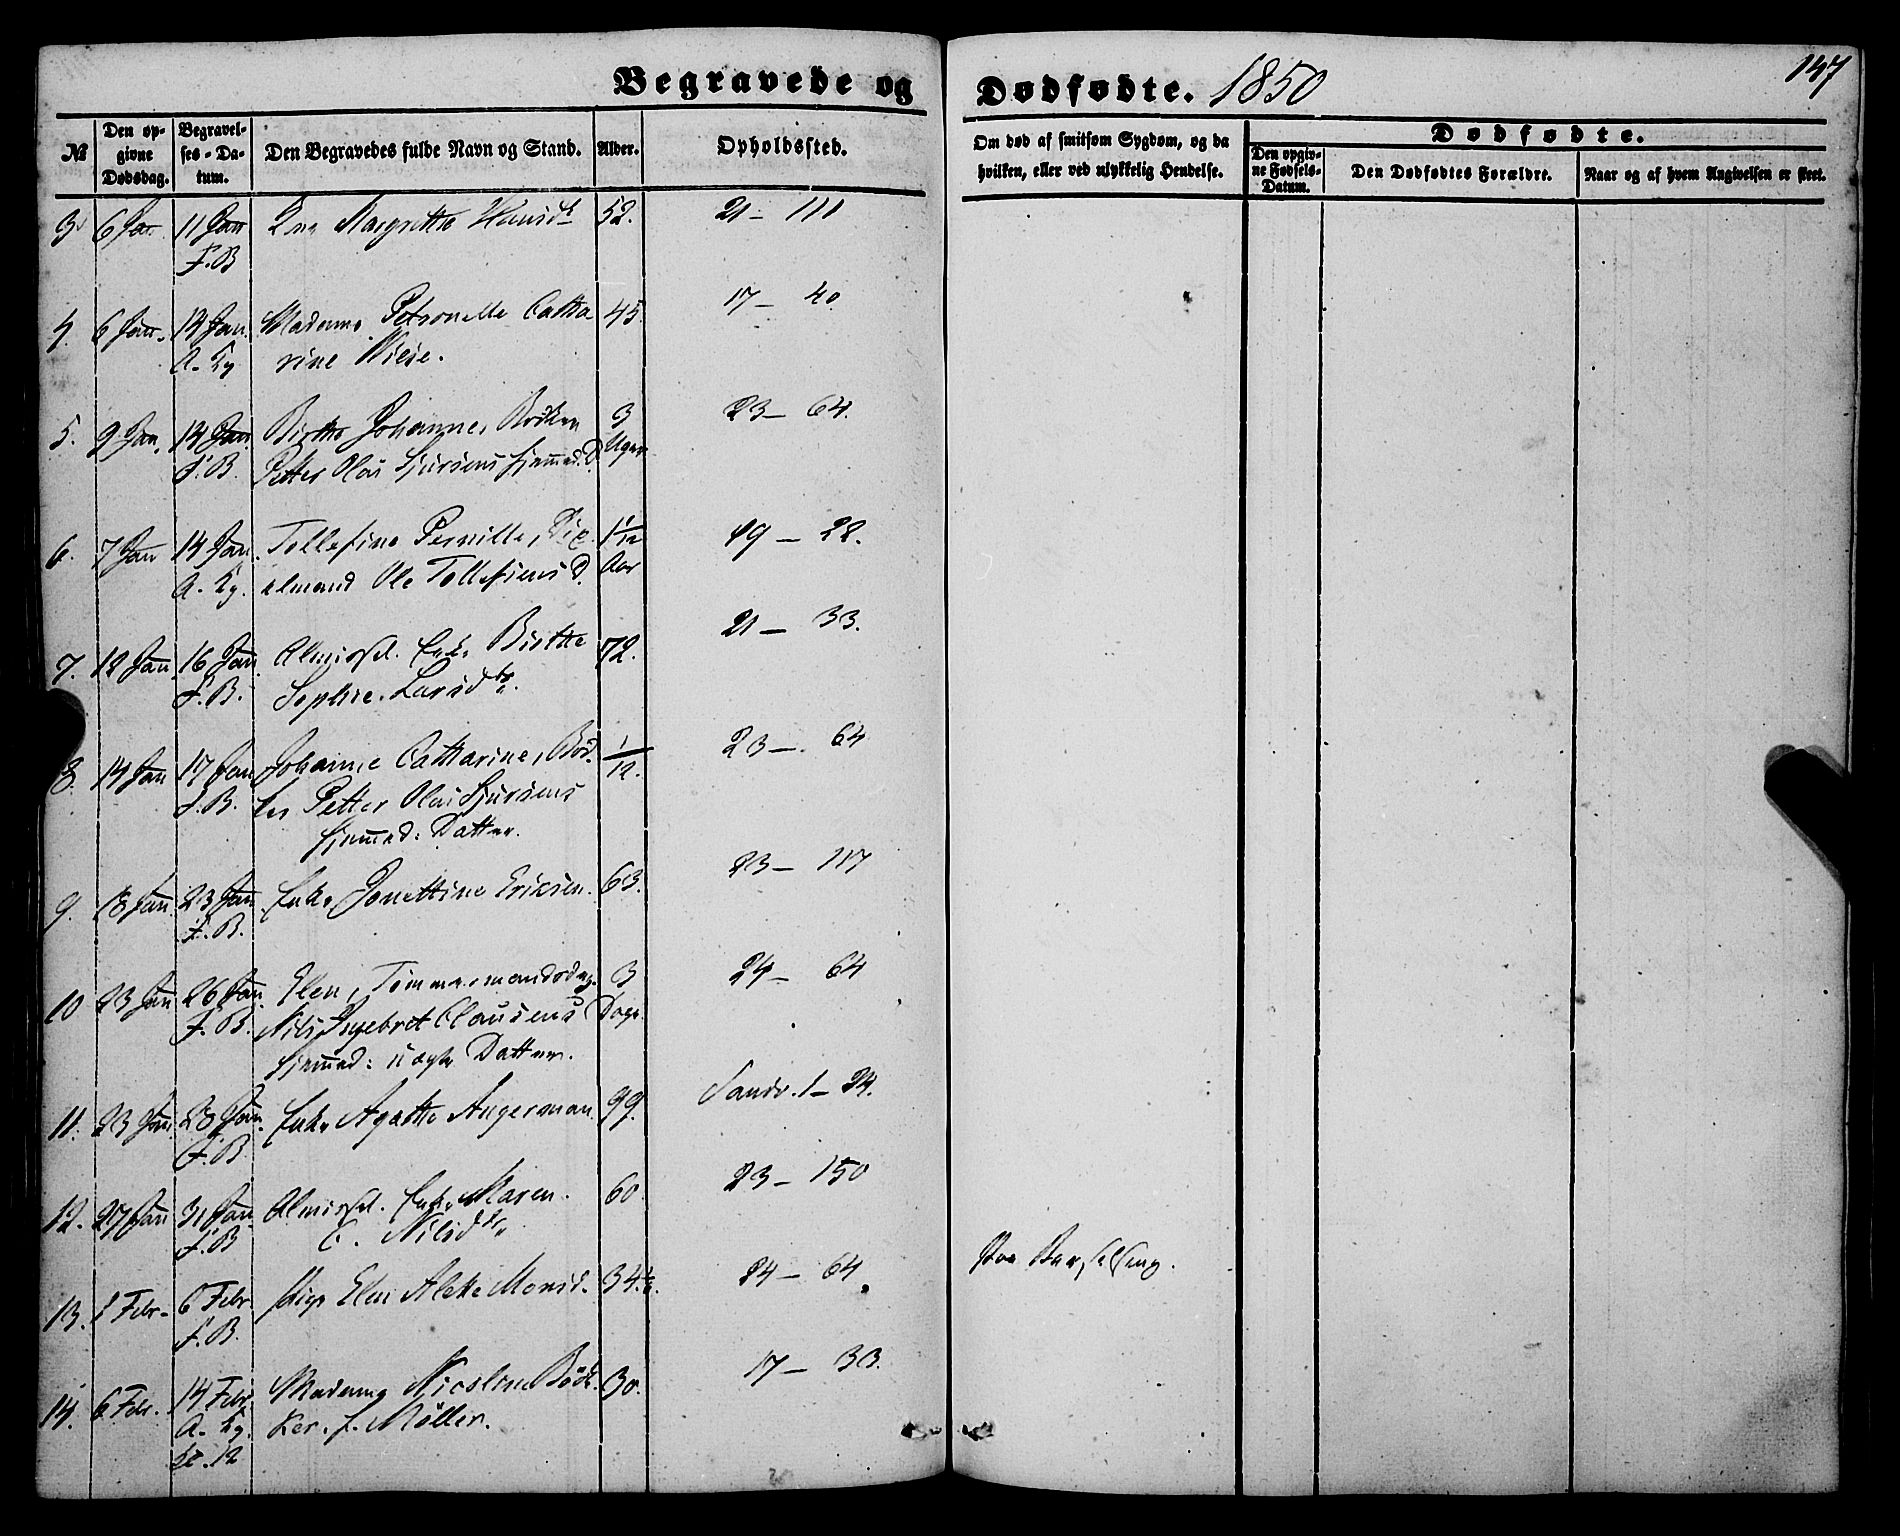 Begravede og Dødfødte. 1850
147
№
Den opgivne Dødsdag.
Begravelses-Datum.
Den Begravedes fulde Navn og Stand.
Alder.
Opholdssted.
Om død af smitsom Sygdom, og da hvilken, eller ved ulykkelig Hendelse.
Dødfødte.
Den opgivne Fødsels-Datum.
Den Dødfødtes Forældre.
Naar og af hvem Angivelsen er skeet.
3 6 Jan 11 Jan Margrethe Hansdt 52. 21 - 111
F. B
4. 6 Jan. 14 Jan. Madame Petronelle Catha 45. 17 - 40
A. Kg rine Wiese.
5. 9 Jan. 14 Jan. Birthe Johanne, 3 23 - 64.
F. B. Petter Olai Sjursens hjemmed. D. Uger
6. 7 Jan 14 Jan. Tollefine Pernille, 1 1/12 19 - 28.
A. Kg. elmand Ole Tollefsens D. Aar
7. 12 Jan. 16 Jan. Almisl. Enke Birthe 72. 21 - 33.
F. B. Sophie Larsdtr.
8. 14 Jan 17 Jan Johanne Catharine, Bød 1/12. 23 - 64
F. B. ker Petter Olai Sjursens
hjemmed: Datter.
9. 18 Jan. 23 Jan Enke Jonettine Eriksen. 63. 23 - 117
F. B.
10 23 Jan 26 Jan. Elen, Tømmermandsdrg. 3 24 - 64
F. B. Nils Ingebret Clausens Dage
hjemmed: uægte Datter.
11. 23 Jan. 28 Jan. Enke Agathe Angerman. 99. Sandv. 1 - 24.
F. B
12. 27 Jan 31 Jan Almisl. Enke Maren 60. 23 - 150
F. B C. Nilsdtr.
13. 1 Febr. 6 Febr. Pige Elen Aleke Monsd. 34 24 - 64 Paa Barselseng.
F. B.
14. 6 Febr. 14 Febr. Madame Nicoline Bød 30. 17 - 33.
A. Kg. ker f. Møller.
Kl. 12